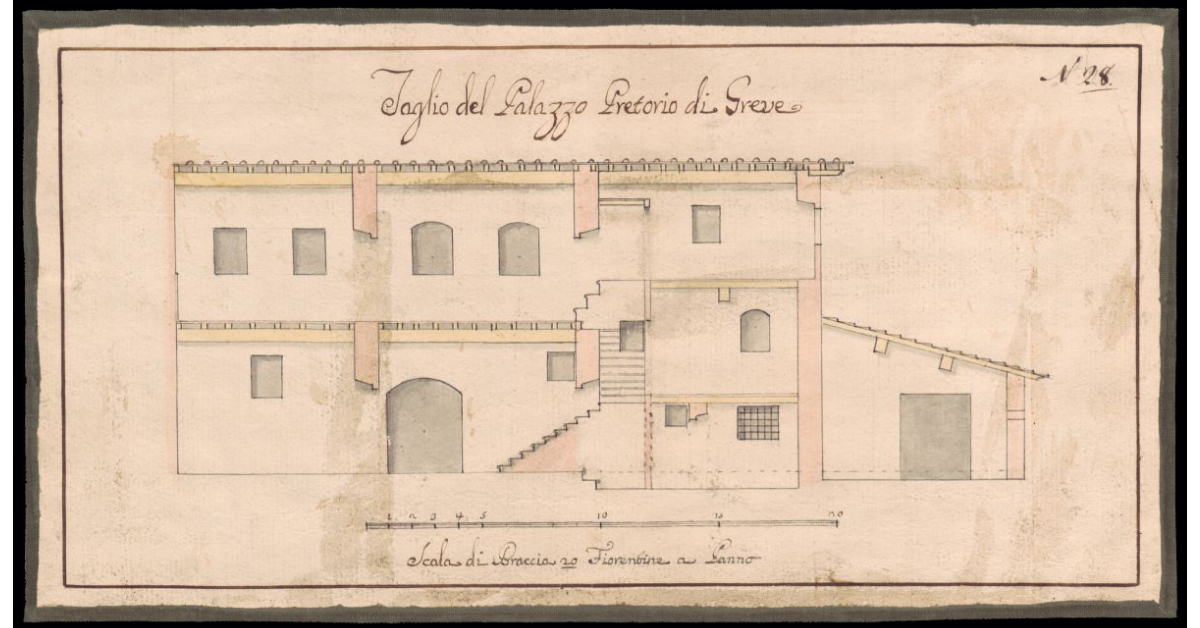 N 28.
Taglio del Palazzo Pretorio di Greve
1 2 3 4 5 10 15 20
Scala di Braccia 20 Fiorentine a Panno